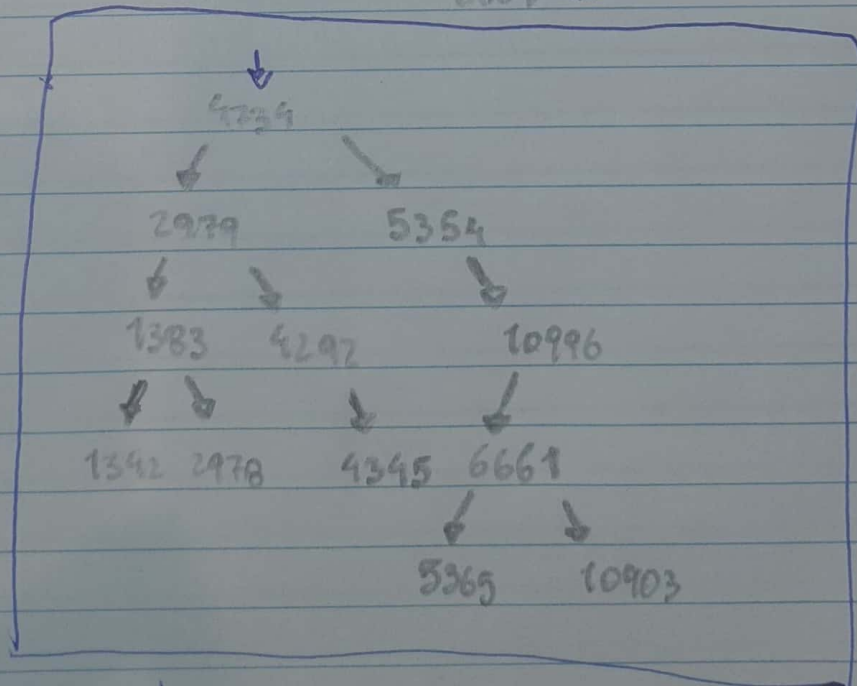 4734
2979 5354
1383 4292 10996
1342 2978 4345 6661
5365 10903